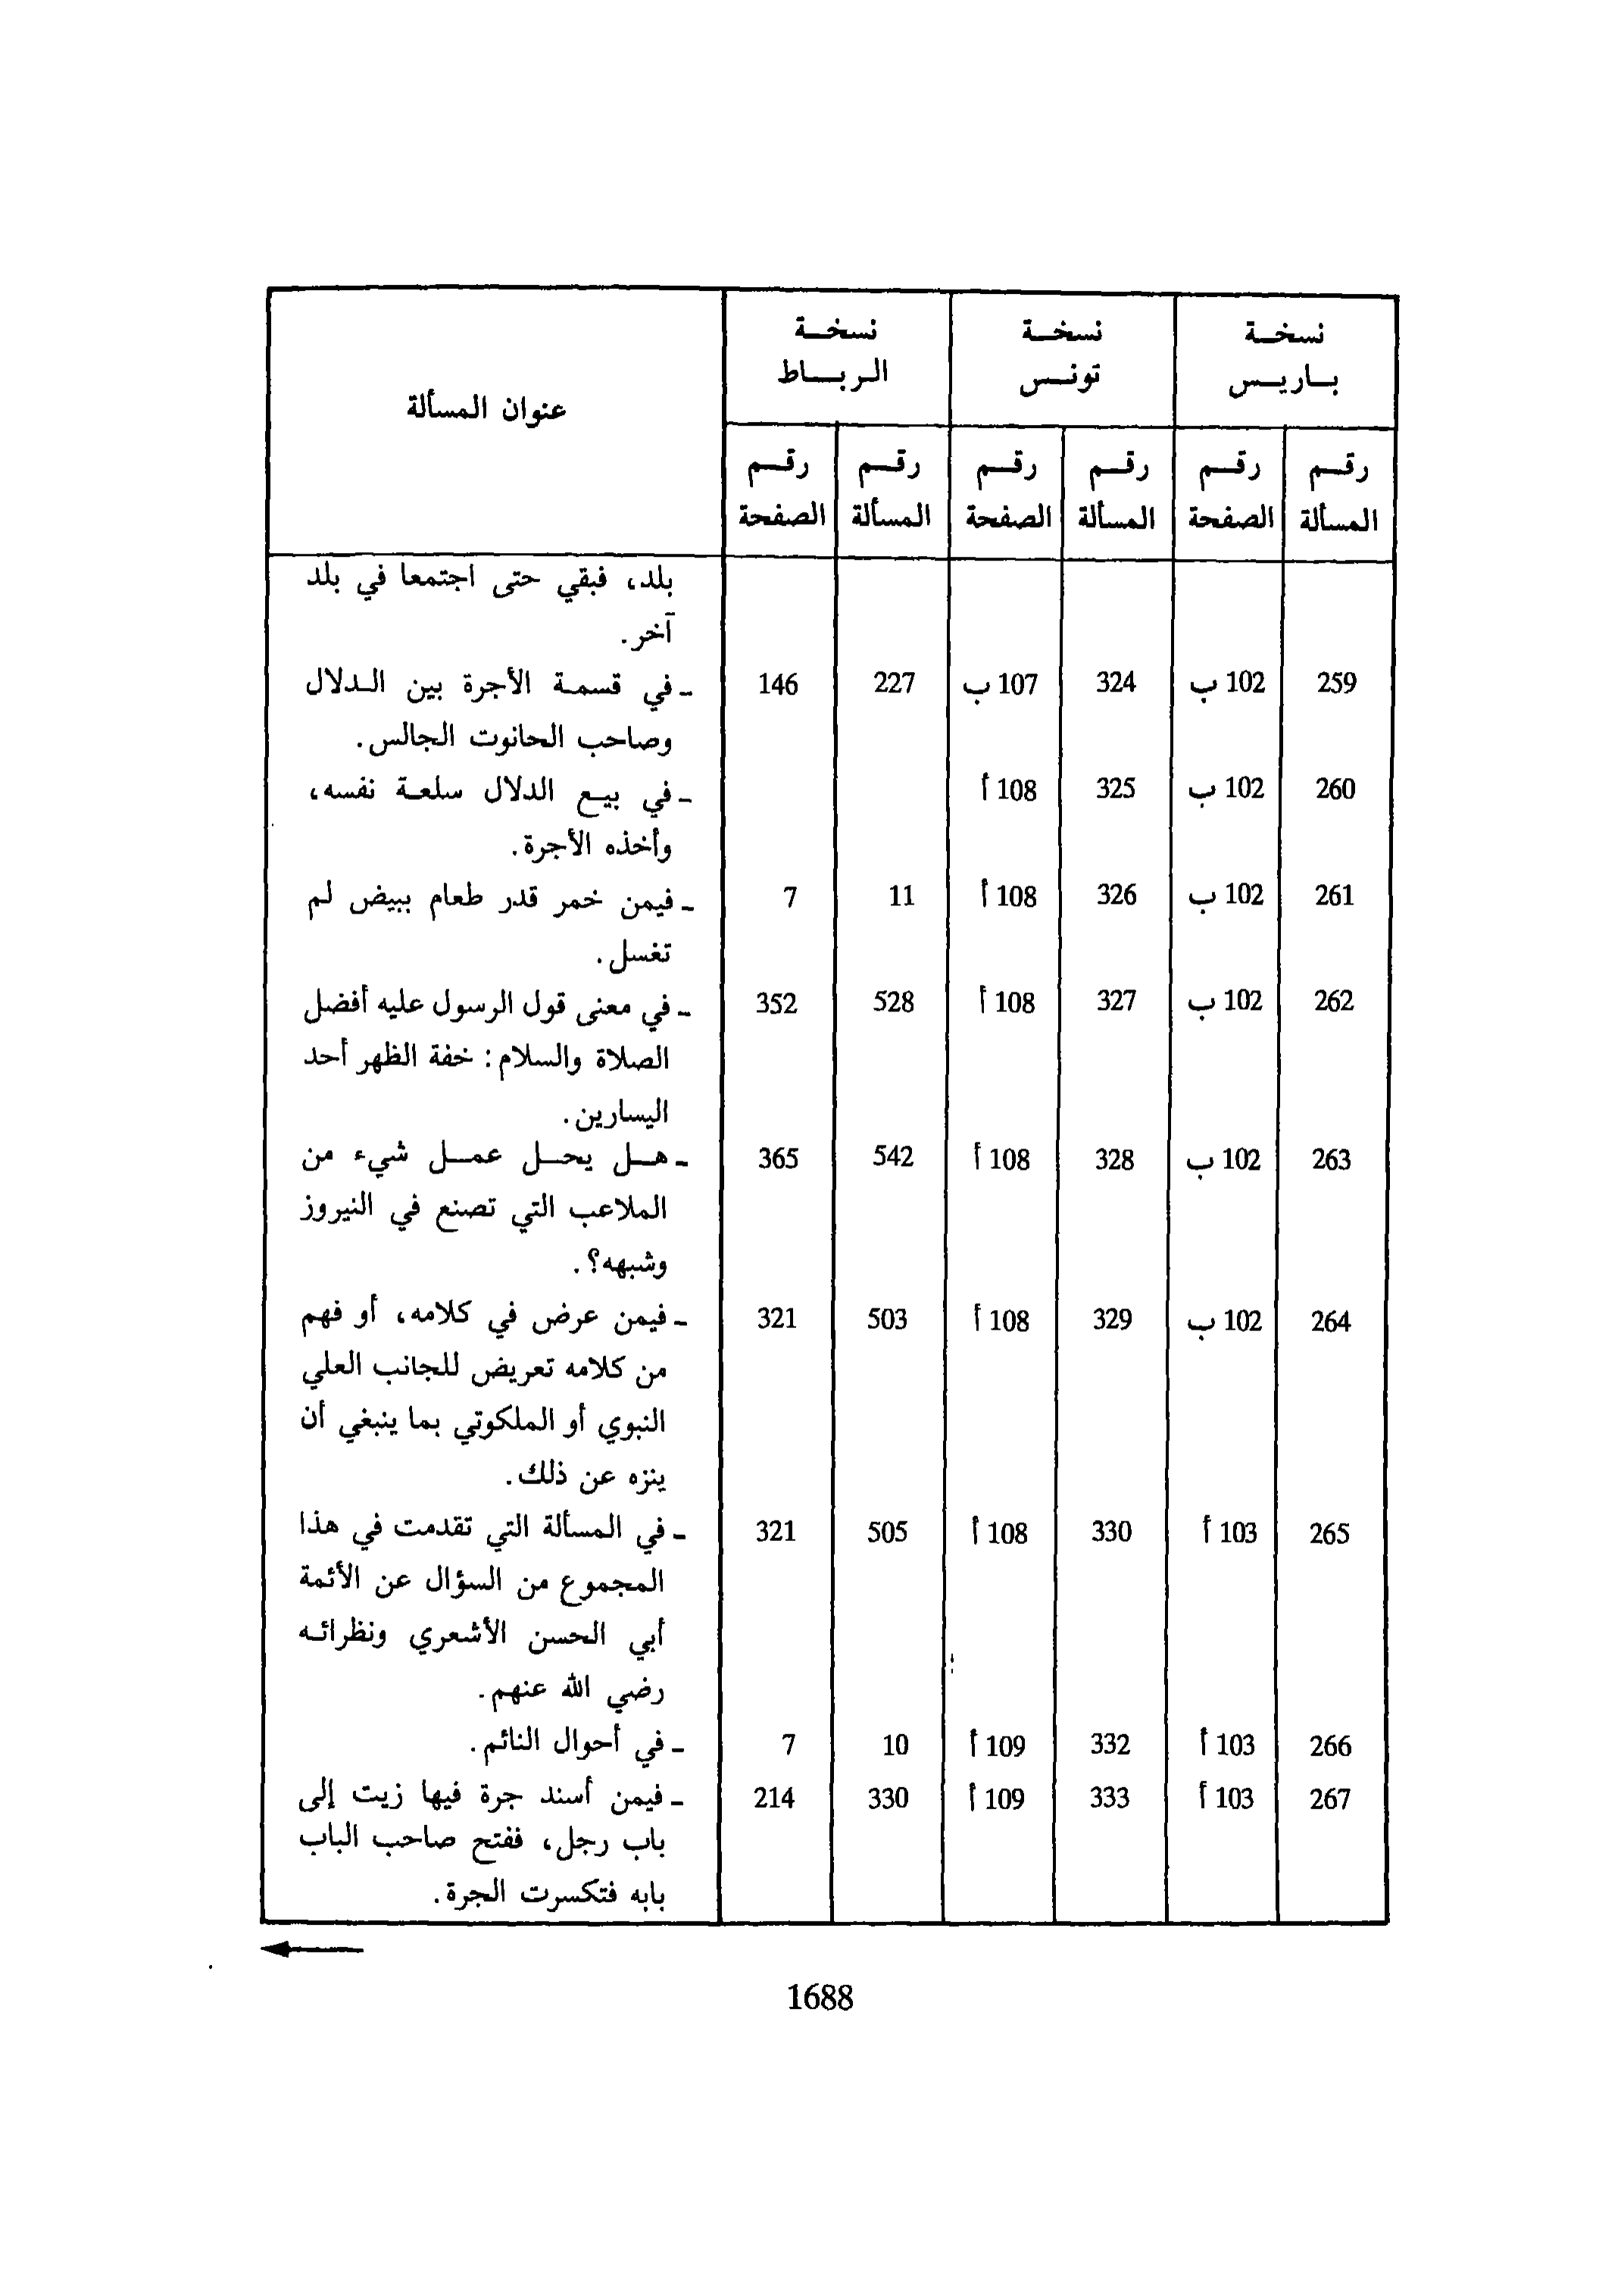 نسخة نسخة نسخة
باريس تونس الرباط
عنوان المسألة
رقم رقم رقم رقم رقم رقم
المسألة الصفحة المسألة الصفحة المسألة الصفحة
بلد، فبقي حتى اجتمعا في بلد
آخر.
259 102 ب 324 107 ب 227 146 ـ في قسمة الأجرة بين الدلال
وصاحب الحانوت الجالس.
260 102 ب 325 108 أ ـ في بيع الدلال سلعة نفسه،
وأخذه الأجرة.
261 102 ب 326 108 أ 11 7 ـ فيمن خمر قدر طعام ببيض لم
تغسل.
262 102 ب 327 108 أ 528 352 ـ في معنى قول الرسول عليه أفضل
الصلاة والسلام: خفة الظهر أحد
اليسارين.
263 102 ب 328 108 أ 542 365 ـ هل يحل عمل شيء من
الملاعب التي تصنع في النيروز
وشبهه؟.
264 102 ب 329 108 أ 503 321 ـ فيمن عرض في كلامه، أو فهم
من كلامه تعريض للجانب العلي
النبوي أو الملكوتي بما ينبغي أن
ينزه عن ذلك.
265 103 أ 330 108 أ 505 321 ـ في المسألة التي تقدمت في هذا
المجموع من السؤال عن الأئمة
أبي الحسن الأشعري ونظرائه
رضي الله عنهم.
266 103 أ 332 109 أ 10 7 ـ في أحوال النائم.
267 103 أ 333 109 أ 330 214 ـ فيمن أسند جرة فيها زيت إلى
باب رجل، ففتح صاحب الباب
بابه فتكسرت الجرة.
1688